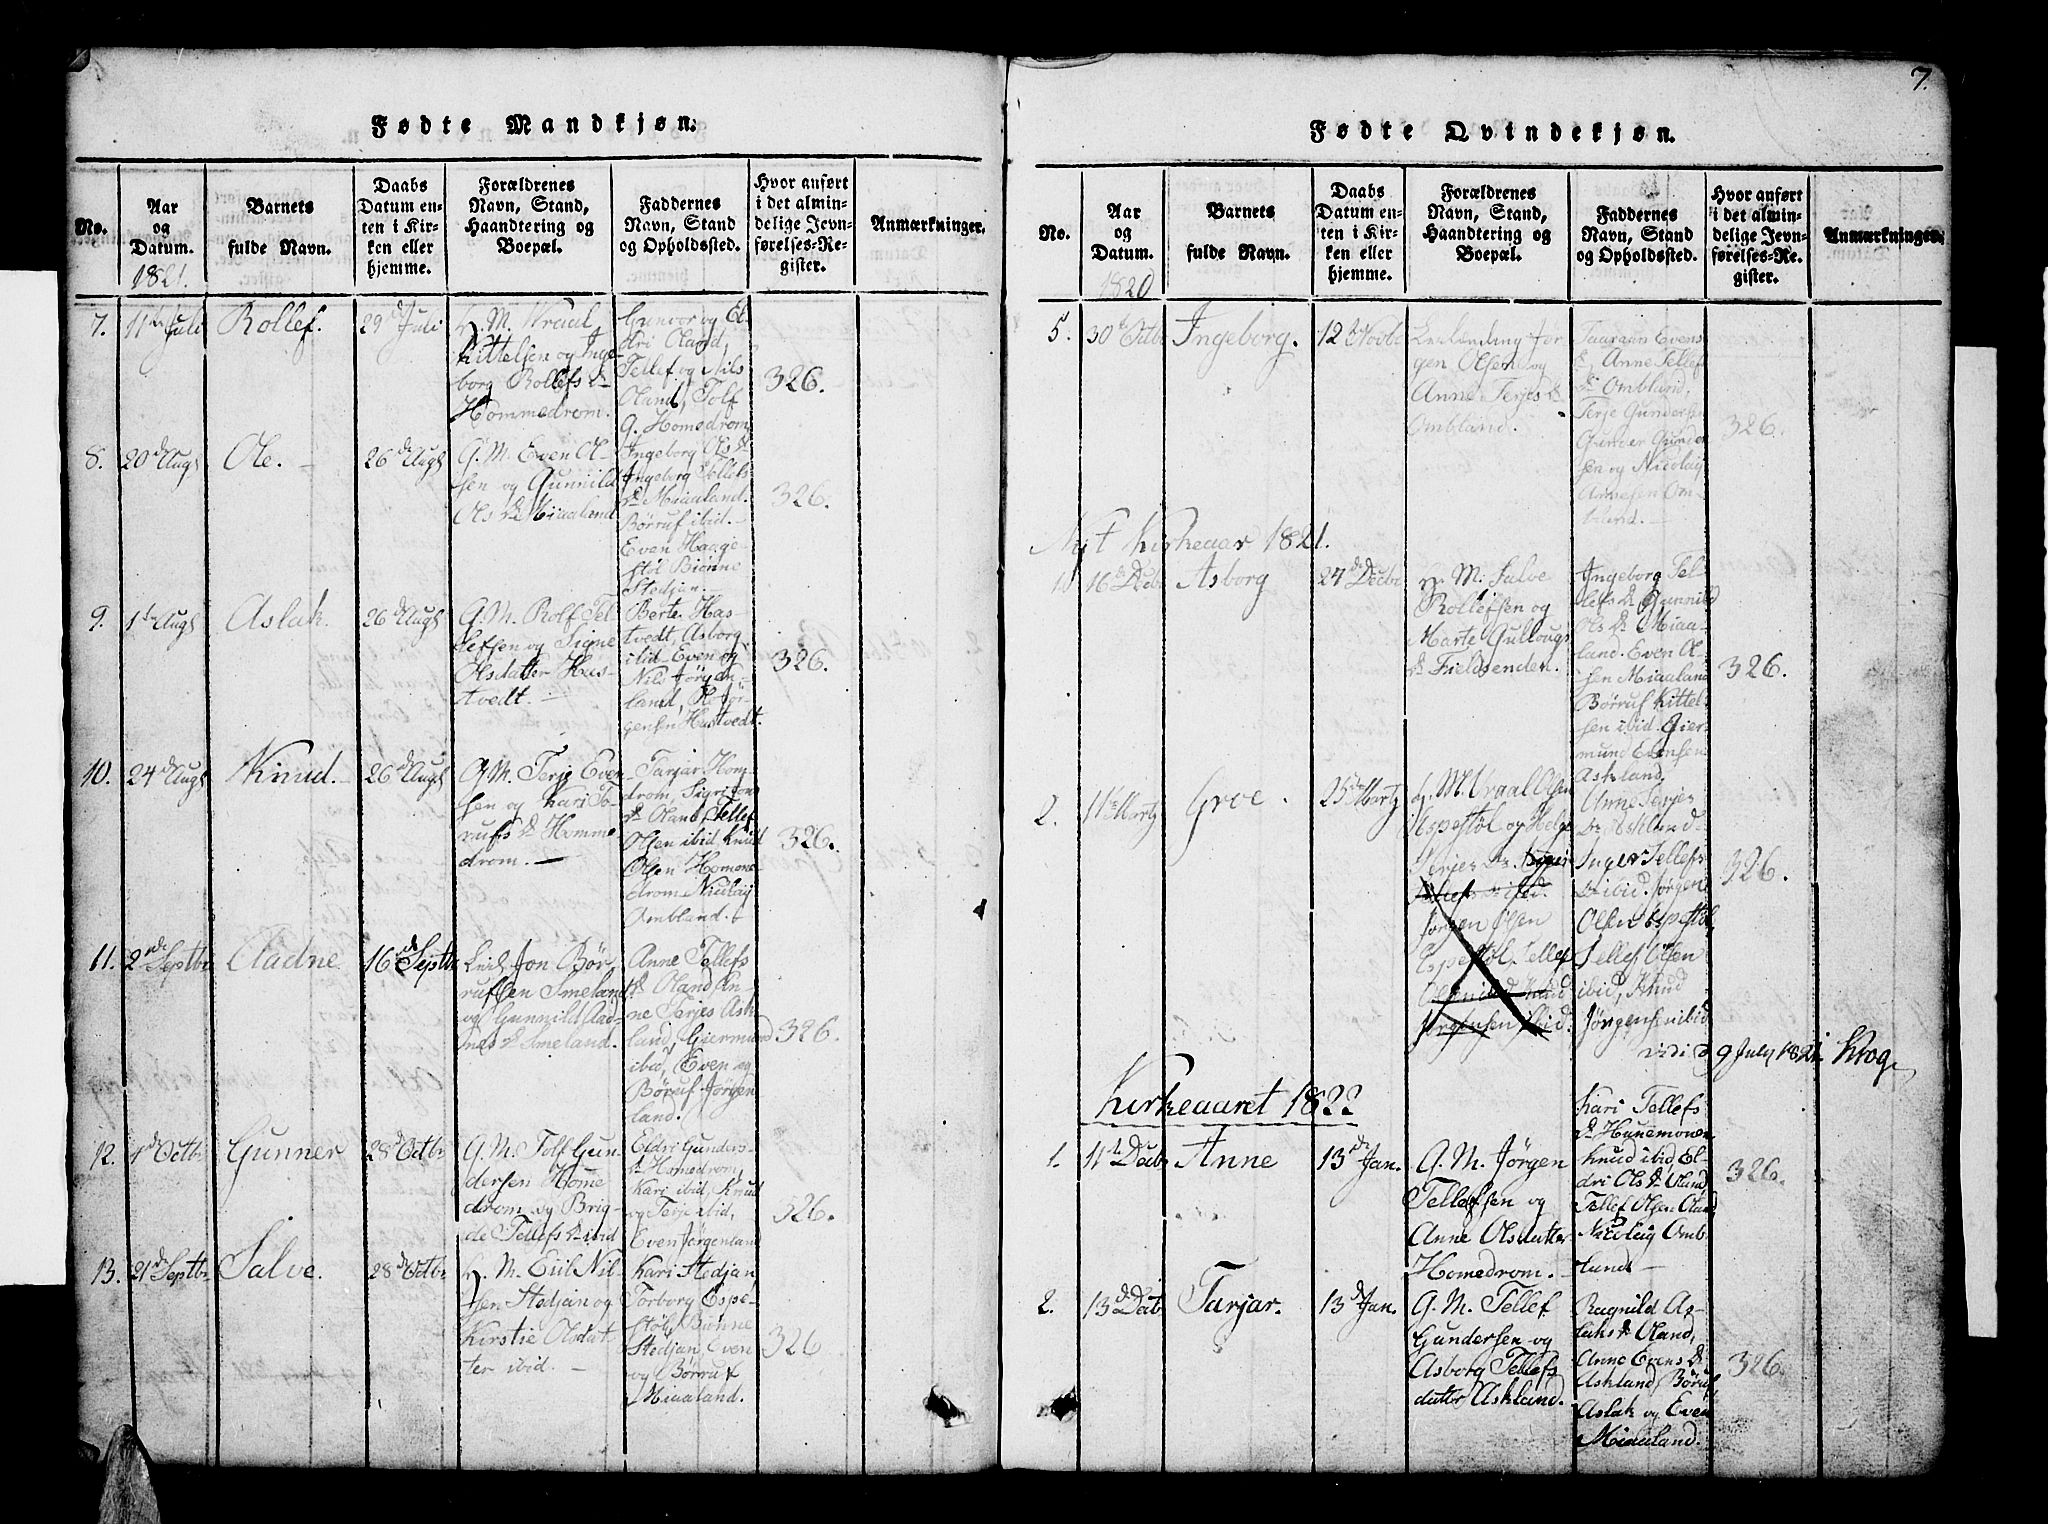 7.
Fødte Mandkjøn.
No.
Aar
og
Datum.
1821.
Barnets
fulde Navn.
Daabs
Datum en-
ten i Kir-
ken eller
hjemme.
Forældrenes
Navn, Stand,
Haandtering og
Boepæl.
Faddernes
Navn, Stand
og Opholdssted.
Hvor anført
i det almin-
delige Jevn-
førelses-Re-
gister.
Anmærkninger.
7.
11te Juli
Rollef.
29d Juli
M. Vraal
Kittelsen og Inge-
borg Rollefs Dr
Hommedrom.
Gunvor og El-
dri Oland,
Tellef og Nils
Oland, Tolf
G. Homedrom
326.
8.
20d Augt
Ole.
26d Augt
G. M. Even Ol-
sen og Gunnild
Ols Dr Miaaland
Ingeborg Ols Dr
Ingeborg Tellefs
Dr Miaaland.
Børruf ibid.
Even Hauge-
støl Biønne
Stedjan.
326.
9.
1ste Augt
Aslak.
26d Augt
G. M. Rolf Tel-
lefsen og Signe
Olsdatter Hus-
tvedt.
Berte Has-
tvedt, Asborg
ibid. Even og
Nils Jørgen-
land, Ole Jør-
gensen Hustvedt.
326.
10.
24d Augt
Knud.
26d Augt
G. M. Terje Even-
sen og Kari To-
rufs Dr Homme-
drom.
Tarjar Hom-
drom, Sigri
Dr Oland, Tellef
Olsen ibid, Knud
Olsen Homme-
drom, Nicolay
Ombland.
326.
11.
2den Septbr
Aadne
16d Septbr
Leil. Jon Bør-
rufsen Smeland
og Gunnild Aad-
nes Dr Smeland.
Anne Tellefs
Dr Oland An-
ne Terjes Ask-
land, Geiermund
ibid, Even og
Børuf Jørgen-
land.
326.
12.
1d Octbr
Gunner
28d Octbr
G. M. Tolf Gun-
dersen Home
drom og Brig-
de Tellefs Dr ibid
Eldri Gunders
Dr Homedrom,
Kari ibid, Knud
og Terje ibid,
Even Jørgenland
326.
13.
21d Septbr
Salve.
28d Octbr
M. Eiil Nil-
sen Stedjan og
Kirstie Olsdat-
ter ibid.
Kari Stedjan,
Torborg Espe-
støl, Biønne
Stedjan, Even
og Børruf
Miaaland.
326
Fødte Qvindekjøn.
No.
Aar
og
Datum.
1820
Barnets
fulde Navn.
Daabs
Datum en-
ten i Kir-
ken eller
hjemme.
Forældrenes
Navn, Stand,
Haandtering og
Boepæl.
Faddernes
Navn, Stand
og Opholdssted.
Hvor anført
i det almin-
delige Jevn-
førelses-Re-
gister.
Anmærkninger.
5.
30te Octbr
Ingeborg.
12te Novbr
Leilænding Jør-
gen Olsen og
Anne Terjes Dr
Ombland.
Taaraan Evens
Dr, Anne Tellefs
Dr Ombland,
Terje Gundersen
Gunder Gunder-
sen og Nicolay
Arnesen Om-
bland.
326.
Nyt Kirkeaar 1821.
16d Decbr
Asborg
24d Decbr
M. Salve
Rollefsen og
Marte Gullougs
Dr Fieldsenden.
Ingeborg Tel-
lefs Dr Gunnild
Ols Dr Miaa-
land. Even Ol-
sen Miaaland
Børruf Kittel-
sen ibid Geier-
mund Elensen
Askland.
326.
2.
11te Martz
Groe.
25de Martz
M. Vraal Olsen
Espestøl og Helge
Terjes Dr.
Jørgen Olsen
Espestøl, Tellef
Olsen ibid Knud
Jørgensen ibid.
Anne Terjes
Dr. Askland
Inger Tellefs
Dr ibid. Jørgen
Olsen Espestøl,
Tellef Olsen
ibid, Knud
Jørgensen ibid
326.
vidi d 9 July 1821 Krog
Kirkeaaret 1822
1.
11te Decbr
Anne
13de Jan.
G. M. Jørgen
Tellefsen og
Anne Olsdatter
Homedrom.
Kari Tellefs
Dr Hunemoen
Knud ibid El-
dri Ols Dr Oland
Tellef Olsen Oland
Nicolaig Omb-
land
326.
2.
13de Decbr
Tarjar.
13de Jan.
G. M. Tellef
Gundersen og
Asborg Tellefs
datter Askland.
Ragnild As-
laks Dr Oland,
Anne Evens Dr
Askland, Børuf
Aslak og Even
Miaaland.
326.